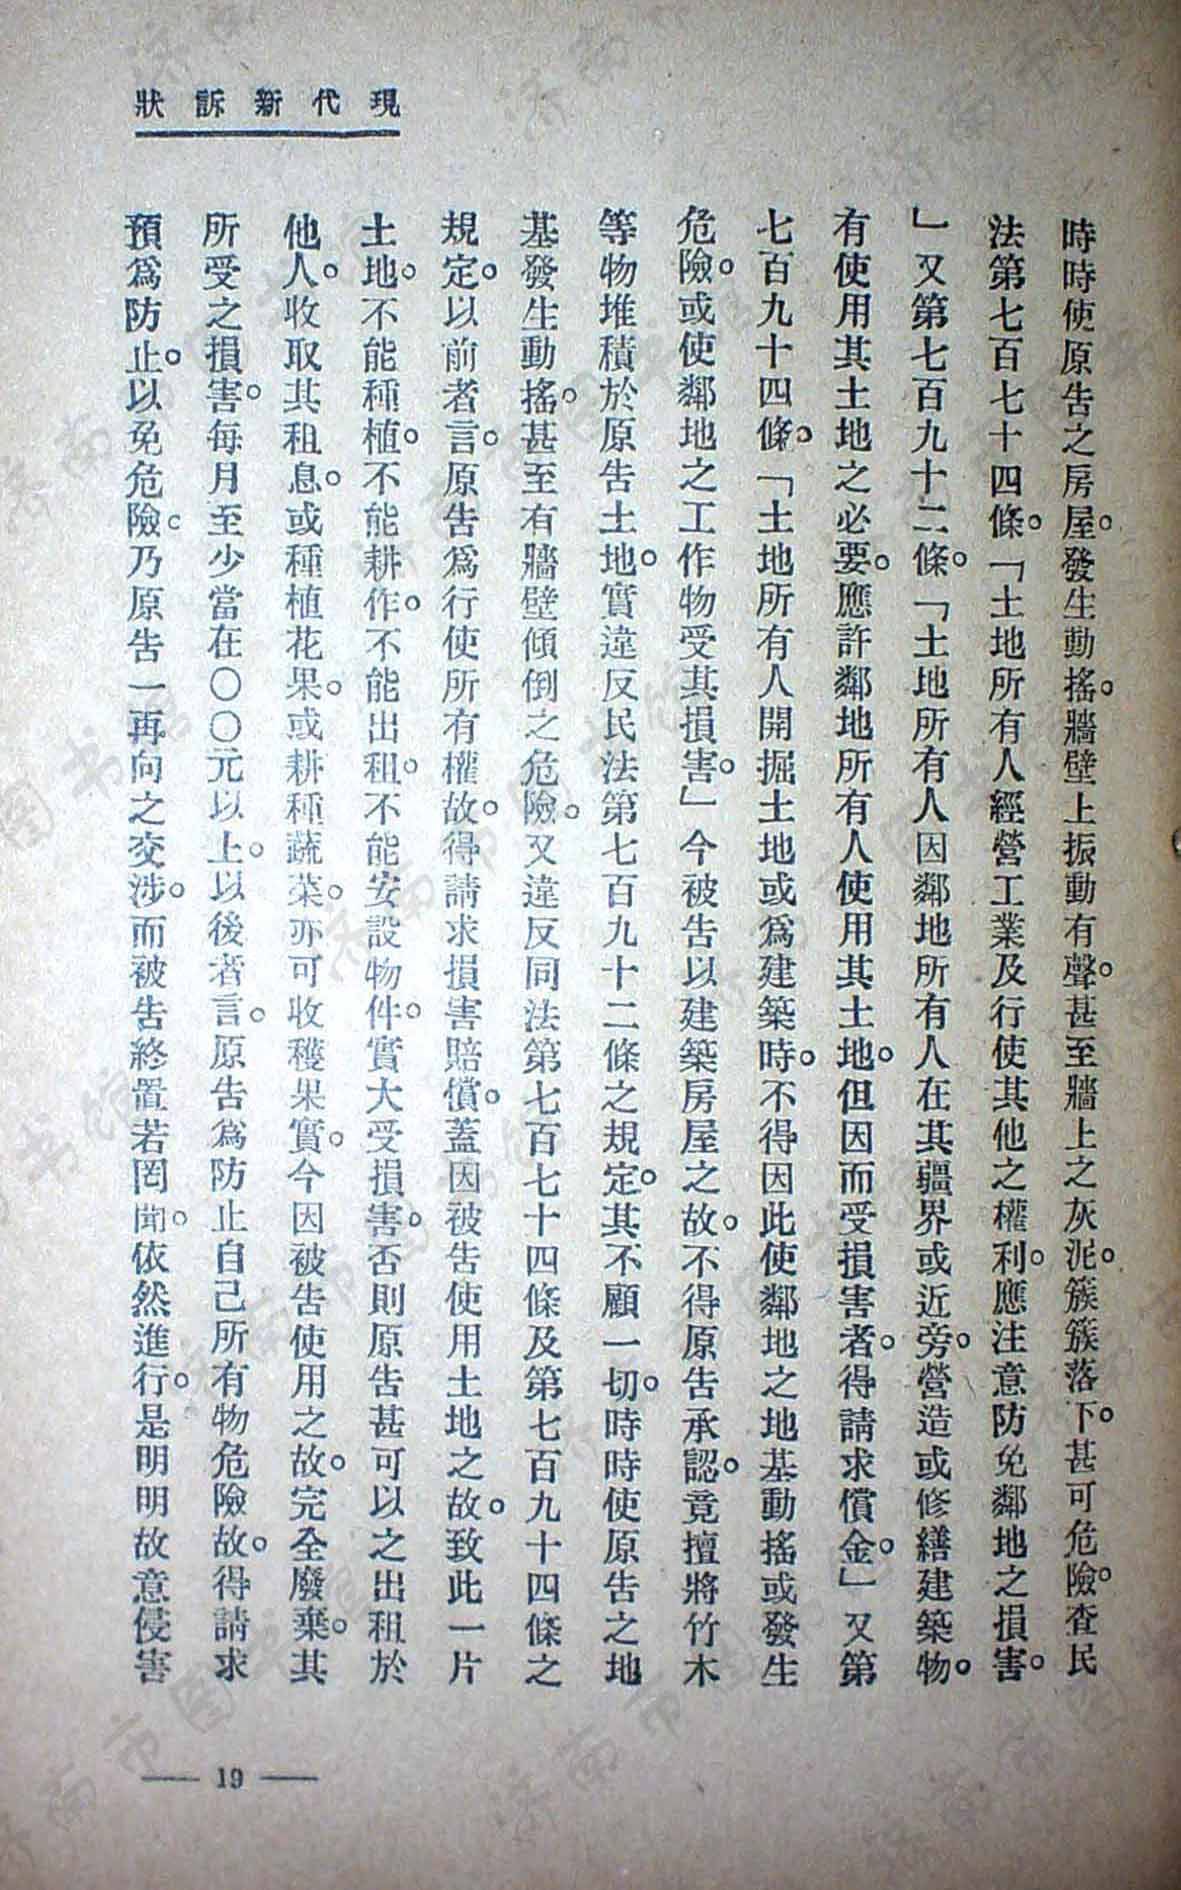 現代新訴狀
時時使原告之房屋。發生動搖。牆壁上振動有聲。甚至牆上之灰泥。簇簇落下。甚可危險。查民
法第七百七十四條。「土地所有人經營工業及行使其他之權利。應注意防免鄰地之損害。
」又第七百九十二條。「土地所有人因鄰地所有人在其疆界或近旁。營造或修繕建築物。
有使用其土地之必要。應許鄰地所有人使用其土地。但因而受損害者。得請求償金。」又第
七百九十四條。「土地所有人開掘土地或爲建築時。不得因此使鄰地之地基動搖或發生
危險。或使鄰地之工作物受其損害。」今被告以建築房屋之故。不得原告承認。竟擅將竹木
等物堆積於原告土地。實違反民法第七百九十二條之規定。其不顧一切。時時使原告之地
基發生動搖。甚至有牆壁傾倒之危險。又違反同法第七百七十四條及第七百九十四條之
規定。以前者言。原告爲行使所有權故。得請求損害賠償。蓋因被告使用土地之故。致此一片
土地。不能種植。不能耕作。不能出租。不能安設物件。實大受損害。否則原告甚可以之出租於
他人。收取其租息。或種植花果。或耕種蔬菜。亦可收穫果實。今因被告使用之故。完全廢棄。其
所受之損害。每月至少當在〇〇元以上。以後者言。原告爲防止自己所有物危險故。得請求
預爲防止。以免危險。乃原告一再向之交涉。而被告終置若罔聞。依然進行。是明明故意侵害
— 19 —
济南市图书馆